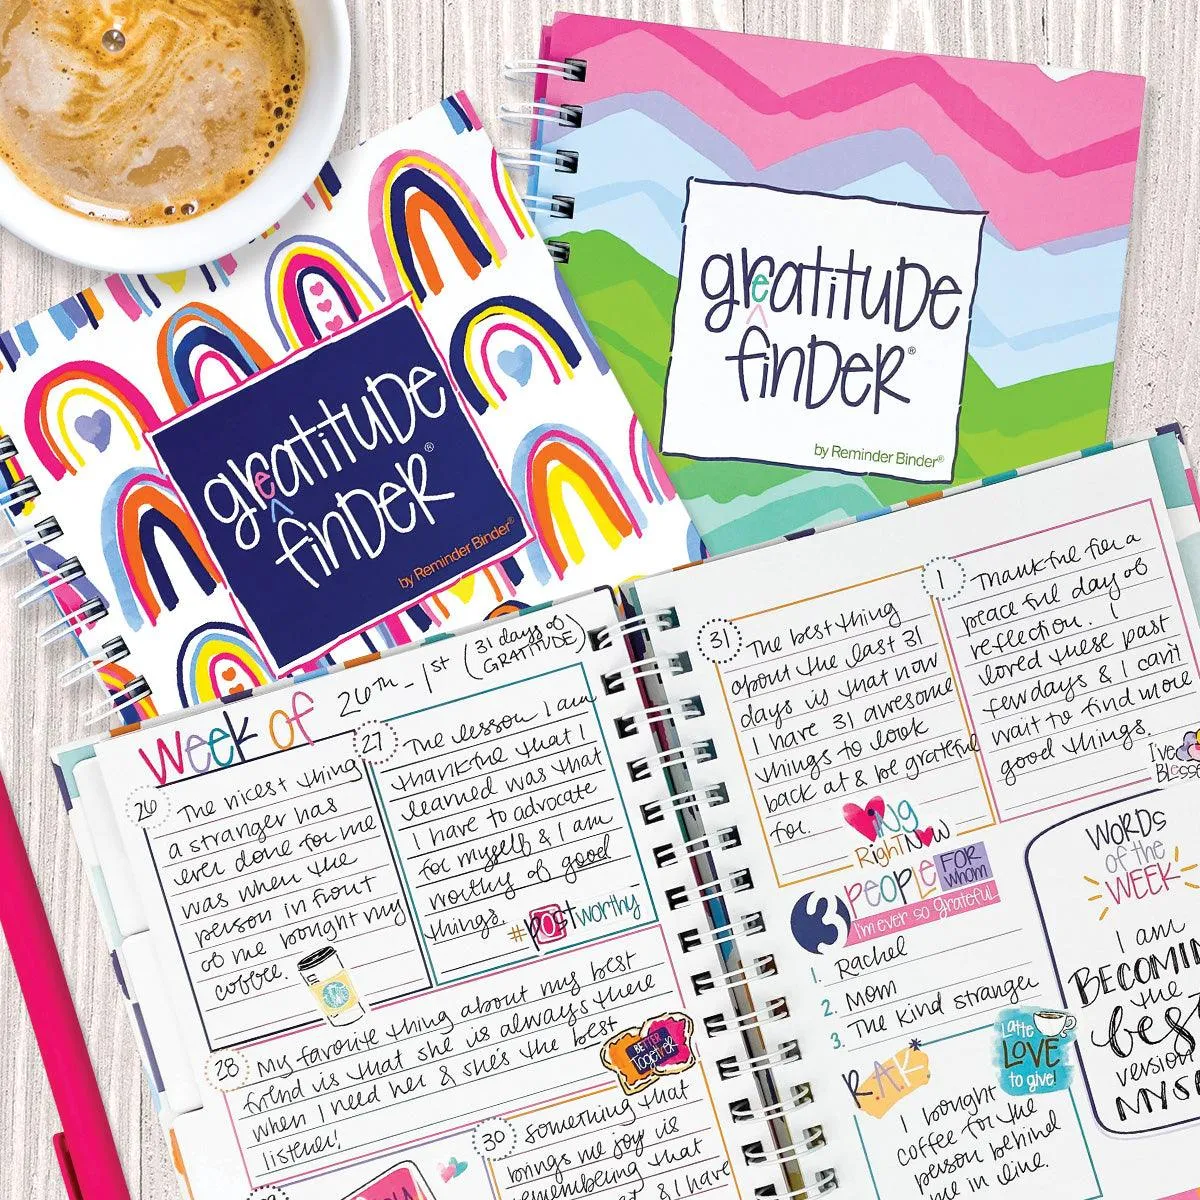 gratitude
e
^
finder®
by Reminder Binder®
gratitude
e
^
finder®
by Reminder Binder®
Week of 26th - 1st (31 days of
GRATITUDE)
26 The nicest thing
a stranger has
ever done for me
was when the
person in front
of me bought my
coffee.
27 The lesson I am
thankful that I
learned was that
I have to advocate
for myself & I am
worthy of good
things.
#postworthy
28 My favorite thing about my best
friend is that she is always there
when I need her & she's the best
listener!
BETTER
Together
30 Something that
brings me joy is
remembering that
& I have
31 The best thing
about the last 31
days is that now
I have 31 awesome
things to look
back at & be grateful
for.
ing
Right Now
1 Thankful for a
peaceful day of
reflection. I
loved these past
few days & I can't
wait to find more
good things.
I've
3 PEOPLE FOR
whom
I'm ever so grateful
1. Rachel
2. Mom
3. The Kind stranger
R.A.K
Latte
LOVE
to give!
I bought
coffee for the
person behind
me in line.
WORDS
of the
WEEK
I am
the
best
version